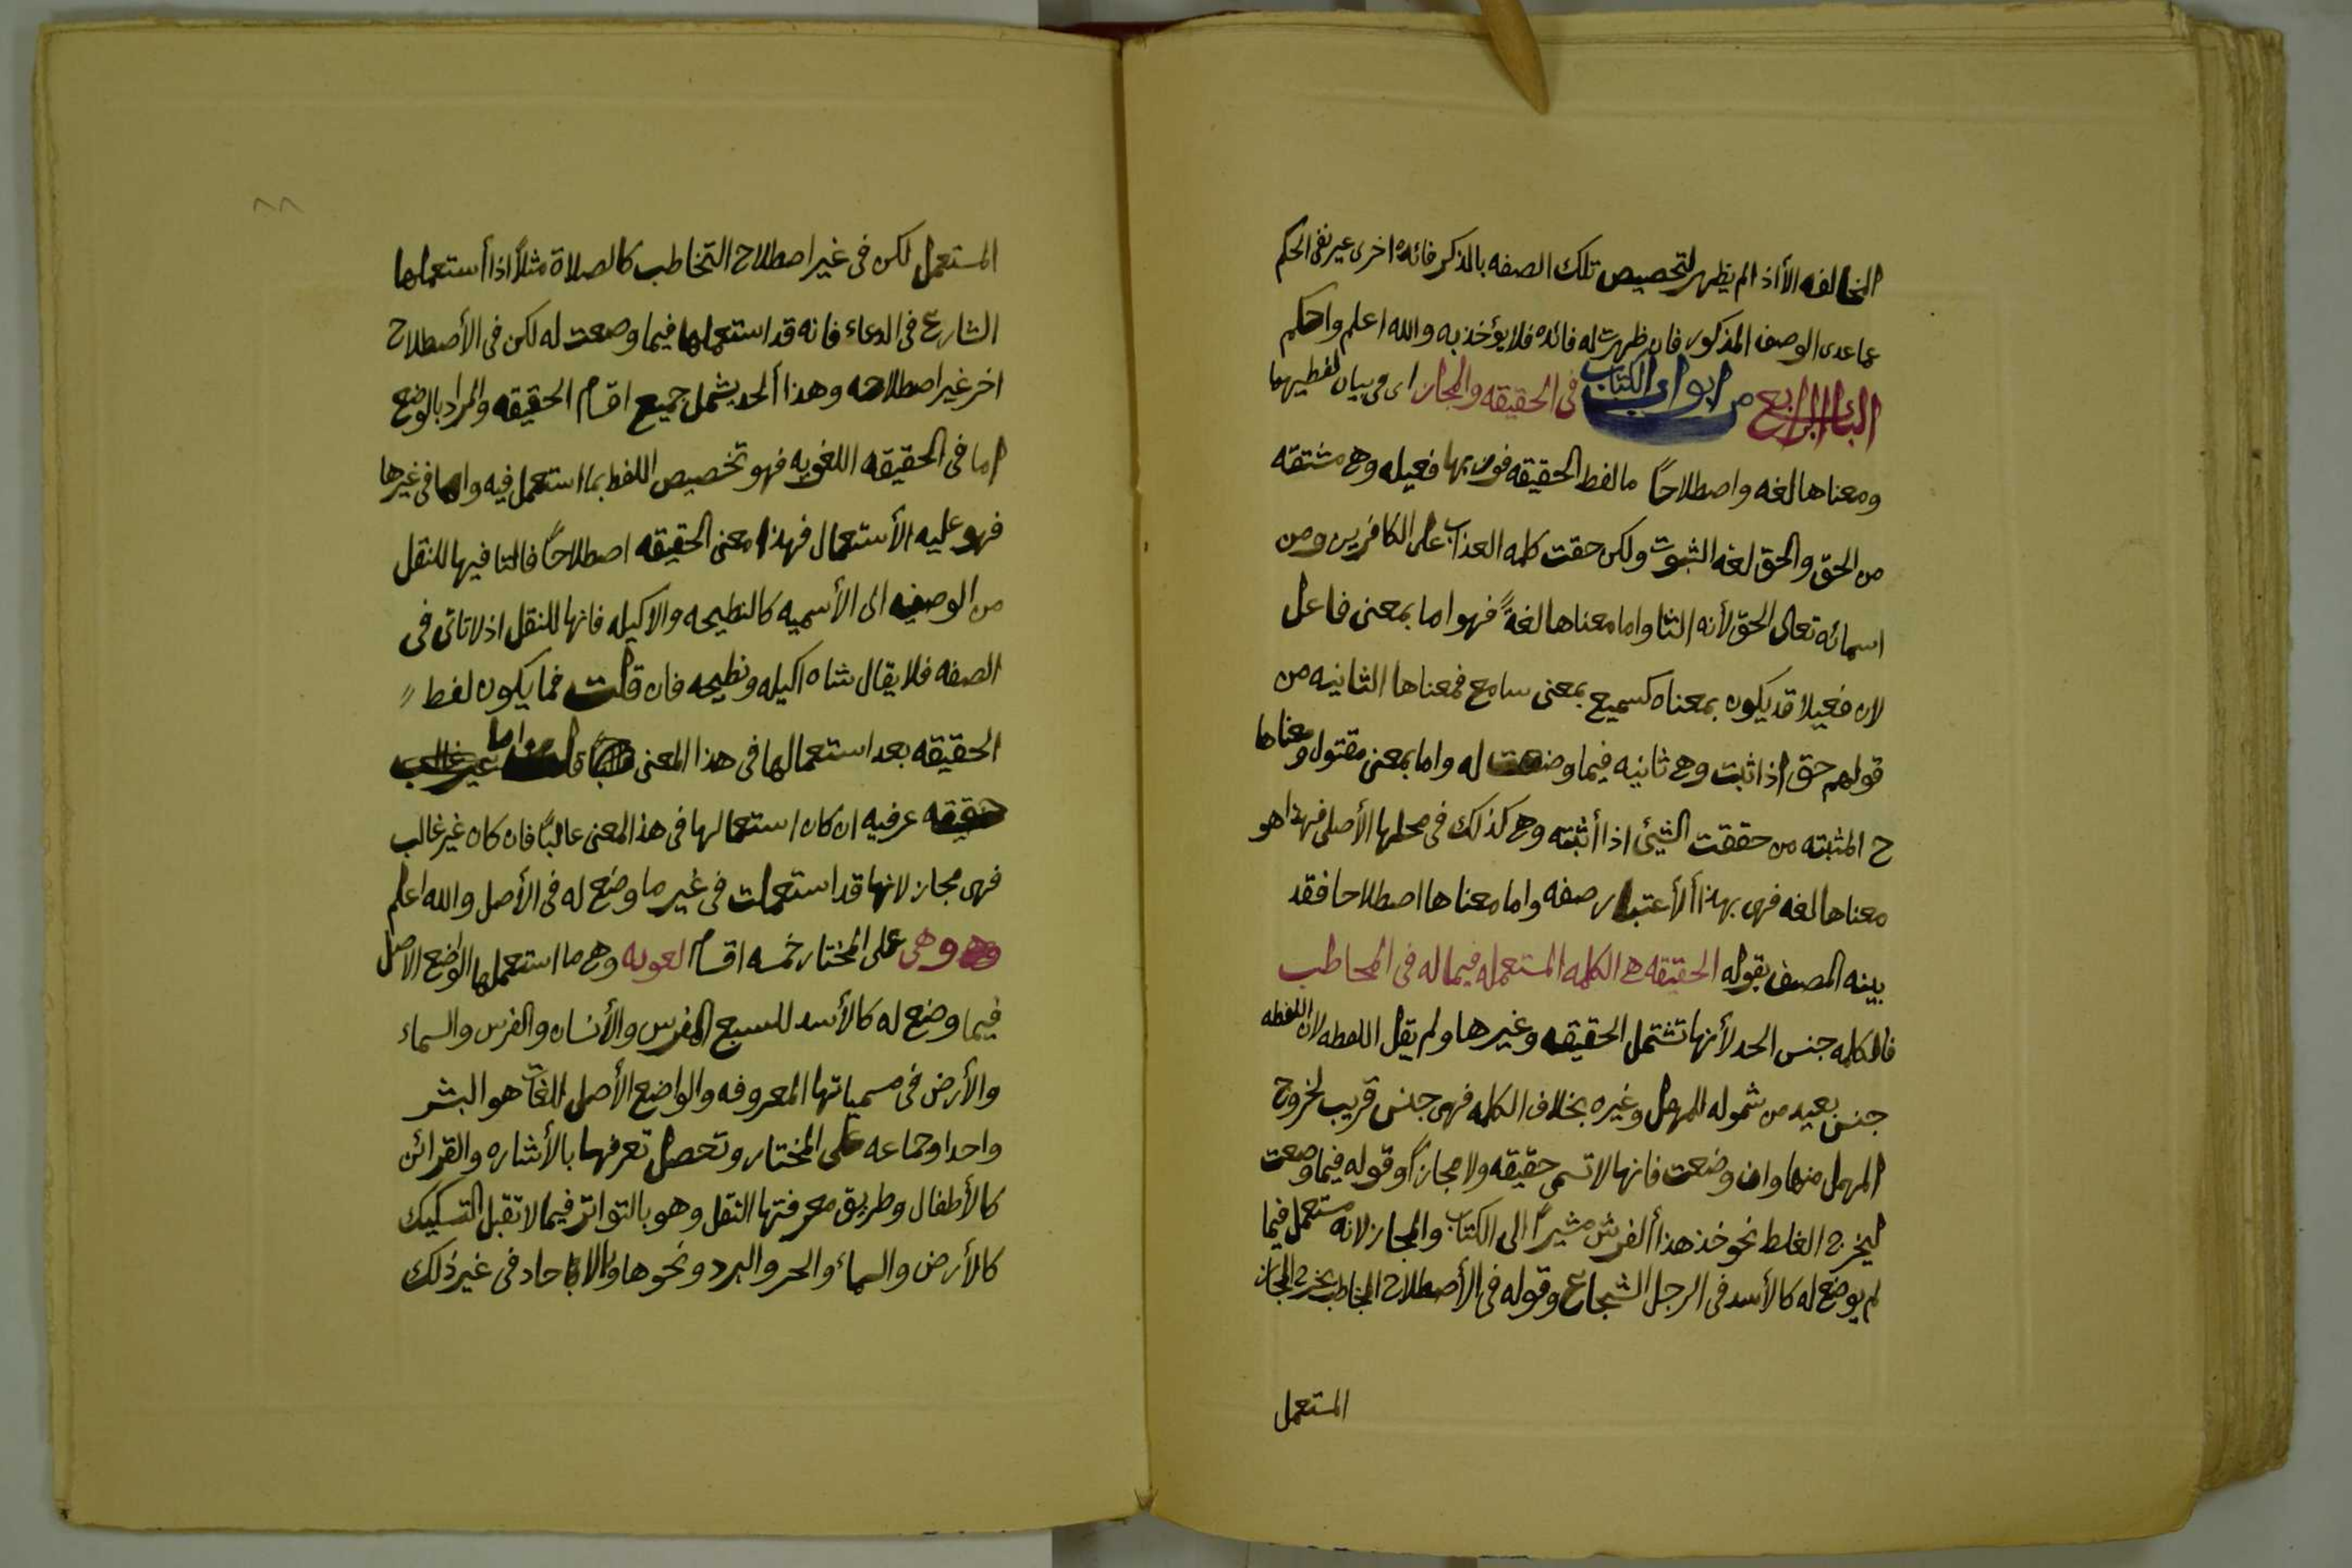 المخالفه الا اذا لم يظهر لتخصيص تلك الصفه بالذكر فائده اخرى غير نفى الحكم
عما عدى الوصف المذكور فان ظهرت له فائده فلا يؤخذ به والله اعلم واحكم
الباب الرابع من ابواب الكتاب فى الحقيقه والمجاز اى فى بيان لفظيهما
ومعناها لغه واصطلاحاً اما لفظ الحقيقه فوزنها فعيله وهى مشتقه
من الحق والحق لغه الثبوت ولكن حقت كلمه العذاب على الكافرين ومن
اسمائه تعالى الحق لأنه الثابت واما معناها لغةً فهو اما بمعنى فاعل
لان فعيلا قد يكون بمعناه كسميع بمعنى سامع فمعناها الثانيه من
قولهم حق اذا ثبت وهى ثانيه فيما وضعت له واما بمعنى مقتول ومعناها
ح المثبته من حققت الشيئ اذا أثبته وهى كذلك فى محلها الأصلى فهذا هو
معناها لغه فهى بهذا ألأعتبار صفه واما معناها اصطلاحا فقد
بينه المصنف بقوله الحقيقه هى الكلمه المستعمله فيما له فى المخاطب
فالكلمه جنس الحد لأنها تشتمل الحقيقه وغيرها ولم يقل اللفظه لان اللفظه
جنس بعيد من شموله للمهمل وغيره بخلاف الكلمه فهى جنس قريب لخروج
المهمل منها وان وضعت فانها لا تسمى حقيقه ولا مجازاً وقوله فيما وضعت
ليخرج الغلط نحو خذ هذا ألفرش مشيراً الى الكتاب والمجاز لانه مستعمل فيما
لم يوضع له كالأسد فى الرجل الشجاع وقوله فى الأصطلاح المخاطب يخرج المجاز
المستعمل
المستعمل لكن فى غير اصطلاح التخاطب كالصلاة مثلاً اذا أستعملها
الشارع فى الدعاء فانه قد استعملها فيما وضعت له لكن فى الأصطلاح
اخر غير اصطلاحه وهذا ألحد يشمل جميع اقسام الحقيقه والمراد بالوضع
اما فى الحقيقه اللغويه فهو تخصيص اللفظ بما استعمل فيه واما فى غيرها
فهو عليه الأستعمال فهذا معنى الحقيقه اصطلاحاً فالتا فيها للنقل
من الوصفيه الى الأسميه كالنطيحه والاكيله فانها للنقل اذ لا تاتى فى
الصفه فلا يقال شاه اكيله ونطيحه فان قلت فما يكون لفظ
الحقيقه بعد استعمالها فى هذا المعنى
حقيقه عرفيه ان كان استعمالها فى هذا المعنى غالباً فان كان غير غالب
فهى مجاز لانها قد استعملت فى غير ما وضع له فى الأصل والله اعلم
وهى على المختار خمسه اقسام لغويه وهى ما استعملها الواضع الاصل
فيما وضع له كالأسد للسبع المفرس والأنسان والفرس والسماء
والأرض فى مسمياتها المعروفه والواضع الأصلى للغات هو البشر
واحدا وجماعه على المختار وتحصل تعرفها بالأشاره والقرائن
كالأطفال وطريق معرفتها النقل وهو بالتواتر فيما لا تقبل التسكيك
كالأرض والسماء والحر والبرد ونحوها والاباحاد فى غير ذلك